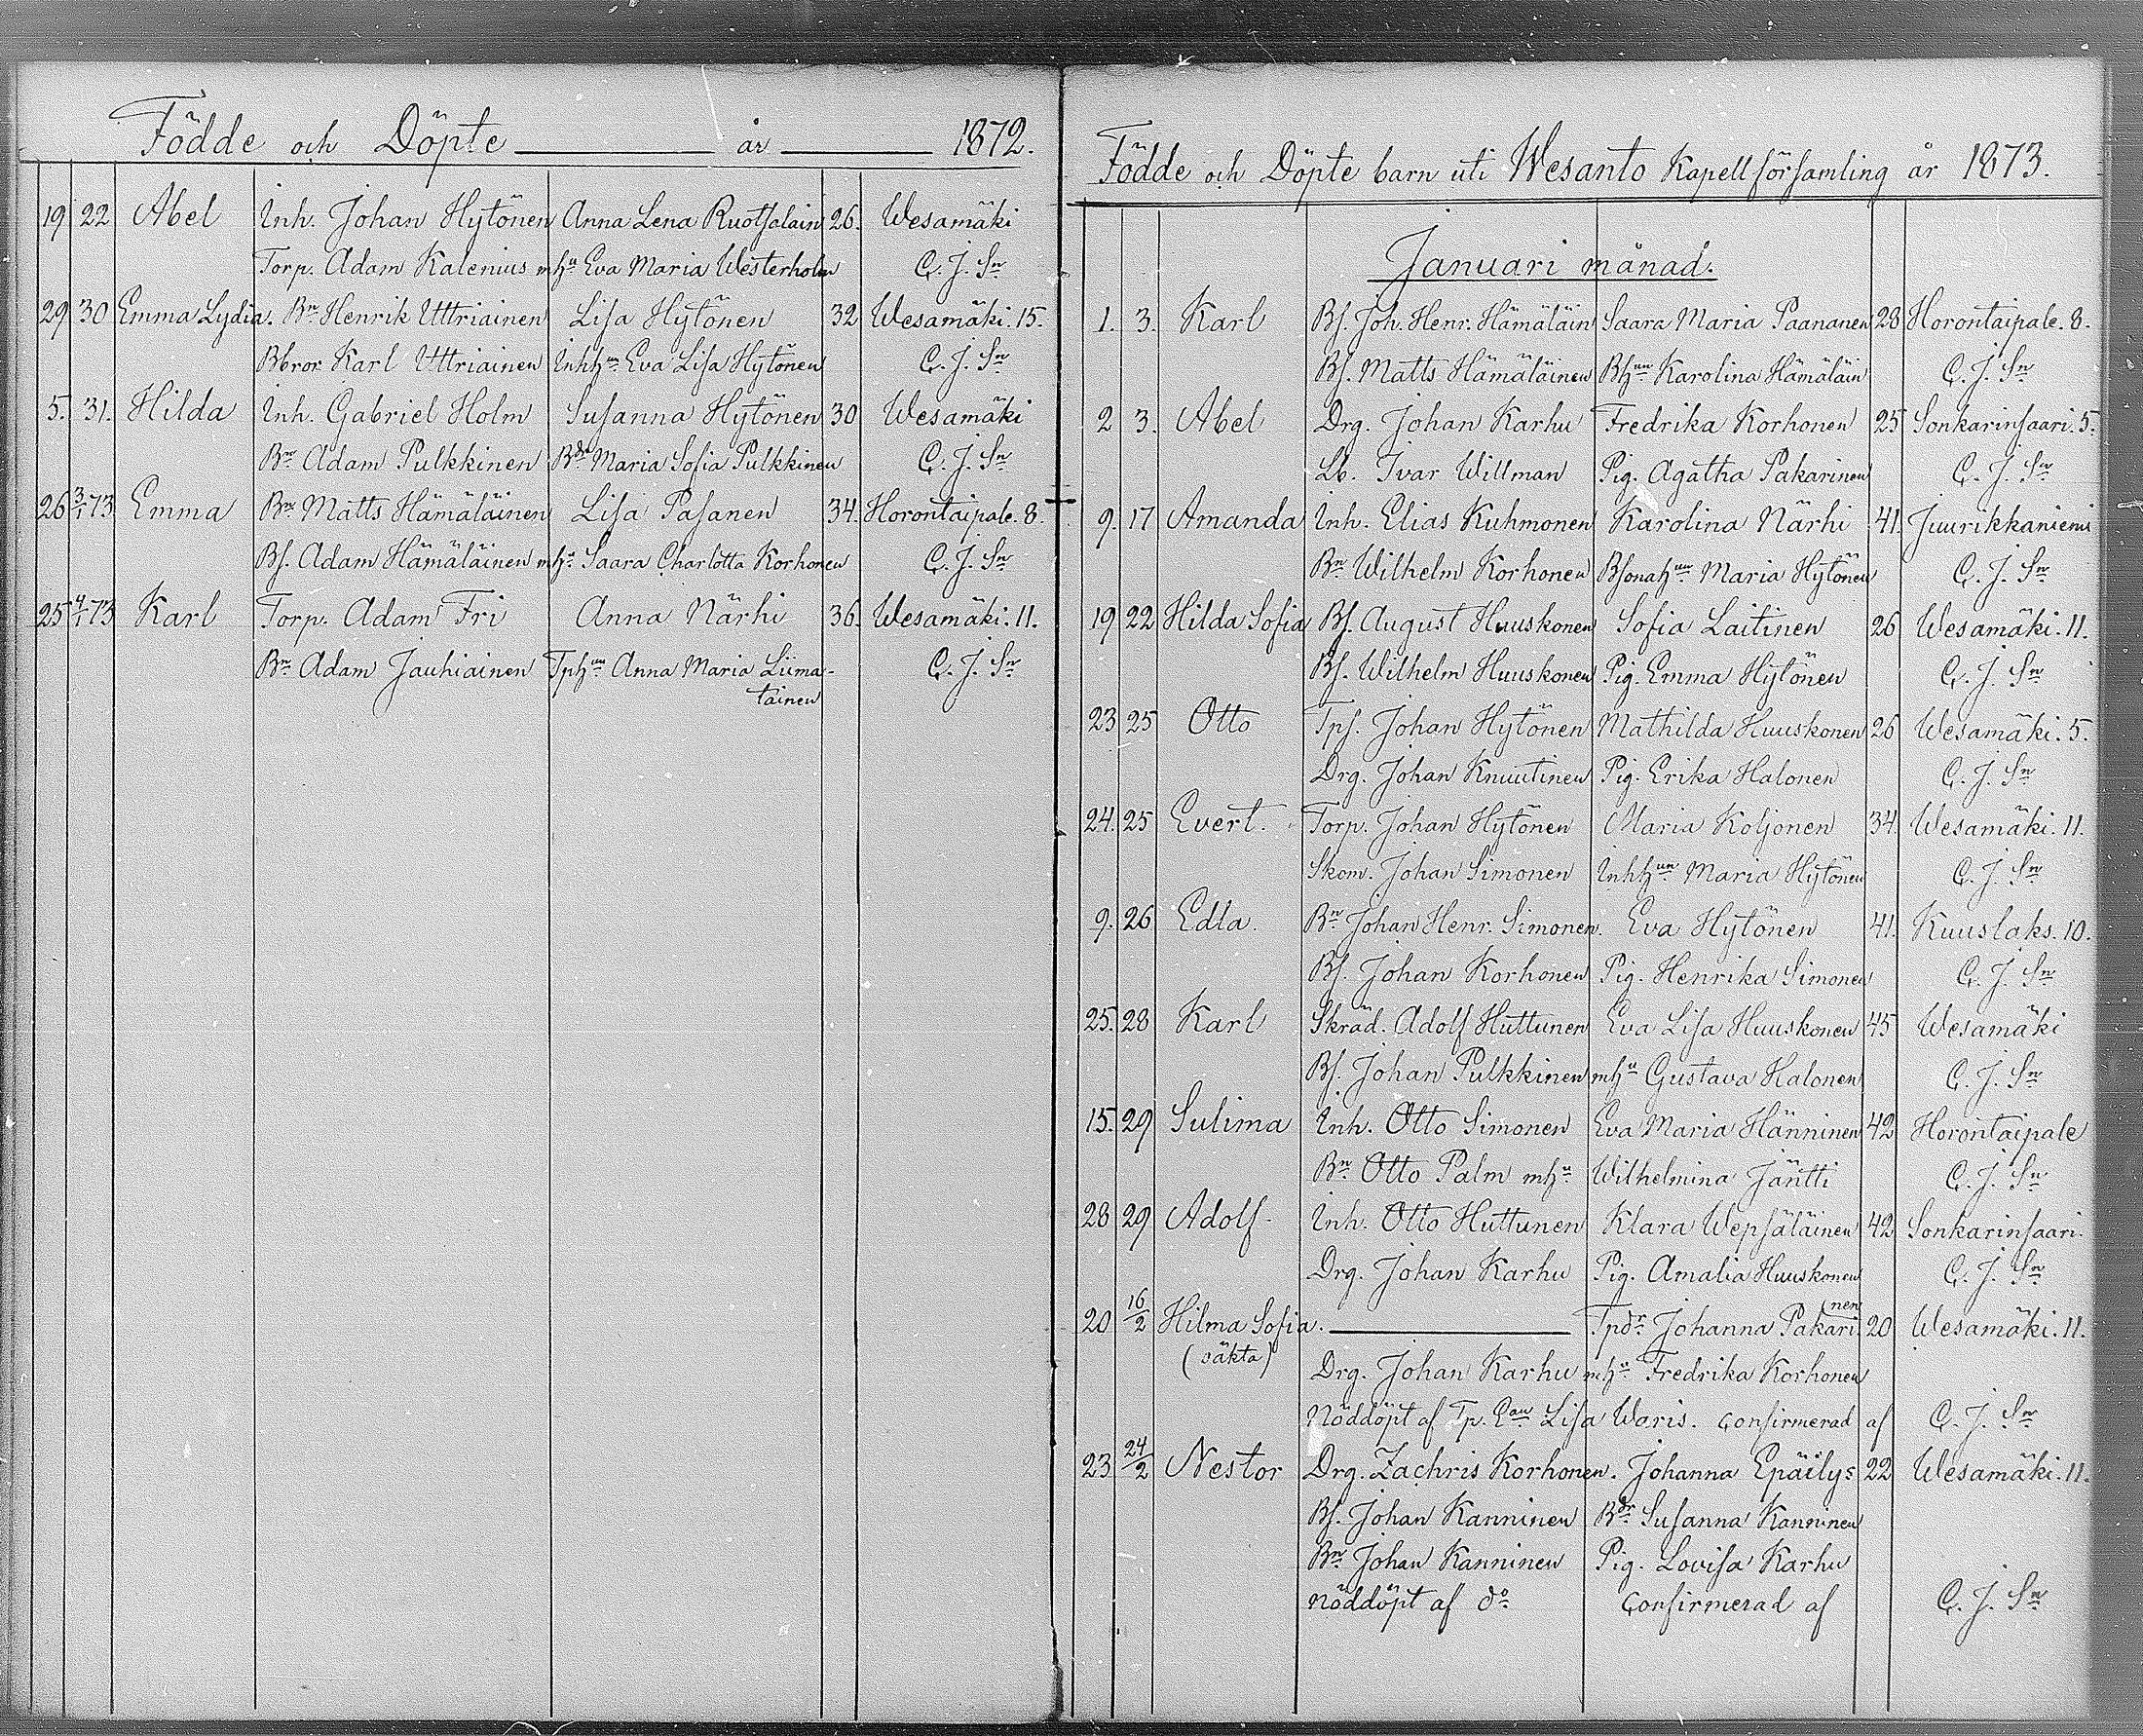 Födde och Döpte år 1872.
19 22 Abel Inh. Johan Hytönen Anna Lena Ruotsalain 26. Wesamäki
Torp. Adam Kalenius mhu Eva Maria Westerholm C. J. Sn
29 30 Emma Lydia. Bn Henrik Uttriainen Lisa Hytönen 32 Wesamäki. 15.
Bbror Karl Uttriainen Inhhun Eva Lisa Hytönen C. J. Sn
5. 31. Hilda Inh. Gabriel Holm Susanna Hytönen 30 Wesamäki
Bn Adam Pulkkinen Bdr Maria Sofia Pulkkinen C. J. Sn
26 3/1 73 Emma Bn Matts Hämäläinen Lisa Pasanen 34. Horontaipale. 8.
Bs. Adam Hämäläinen mhu Saara Charlotta Korhonen C. J. Sn
25 4/1 73 Karl Torp. Adam Fri Anna Närhi 36. Wesamäki. 11.
Bn Adam Jauhiainen Tphun Anna Maria Liima- C. J. Sn
tainen
Födde och Döpte barn uti Wesanto Kapellförsamling år 1873.
Januari månad.
1. 3. Karl Bs. Joh. Henr. Hämäläin Saara Maria Paananen 28 Horontaipale. 8.
Bs. Matts Hämäläinen Bhun Karolina Hämäläin C. J. Sn
2 3. Abel Drg. Johan Karhu Fredrika Korhonen 25 Sonkarinsaari. 5.
Lb. Ivar Willman Pig. Agatha Pakarinen C. J. Sn
9. 17 Amanda Inh. Elias Kuhmonen Karolina Närhi 41. Juurikkaniemi
Bn Wilhelm Korhonen Bsonahun Maria Hytönen C. J. Sn
19 22 Hilda Sofia Bs. August Huuskonen Sofia Laitinen 26 Wesamäki. 11.
Bs. Wilhelm Huuskonen Pig. Emma Hytönen C. J. Sn
23 25 Otto Tps. Johan Hytönen Mathilda Huuskonen 26 Wesamäki. 5.
Drg. Johan Knuutinen Pig. Erika Halonen C. J. Sn
24. 25 Evert. Torp. Johan Hytönen Maria Koljonen 34. Wesamäki. 11.
Skom. Johan Simonen Inhhun Maria Hytönen C. J. Sn
9. 26 Edla. Bn Johan Henr. Simonen. Eva Hytönen 41. Kuuslaks. 10.
Bs. Johan Korhonen Pig. Henrika Simonen C. J. Sn
25. 28 Karl Skräd. Adolf Huttunen Eva Lisa Huuskonen 45 Wesamäki
Bs. Johan Pulkkinen mhu Gustava Halonen C. J. Sn
15. 29 Sulima Inh. Otto Simonen Eva Maria Hänninen 42 Horontaipale
Bn Otto Palm mhu Wilhelmina Jäntti C. J. Sn
28 29 Adolf Inh. Otto Huttunen Klara Wepsäläinen 42 Sonkarinsaari.
Drg. Johan Karhu Pig. Amalia Huuskonen C. J. Sn
20 16/2 Hilma Sofia. Tpdr Johanna Pakarinen 20 Wesamäki. 11.
(oäkta) Drg. Johan Karhu mhu Fredrika Korhonen
Nöddöpt af Tp. Lisa Waris. Confirmerad af C. J. Sn
23 24/2 Nestor Drg. Zachris Korhonen. Johanna Epäilys 22 Wesamäki. 11.
Bs. Johan Kanninen Bdr Susanna Kanninen
Bn Johan Kanninen Pig. Lovisa Karhu
Nöddöpt af do Confirmerad af C. J. Sn